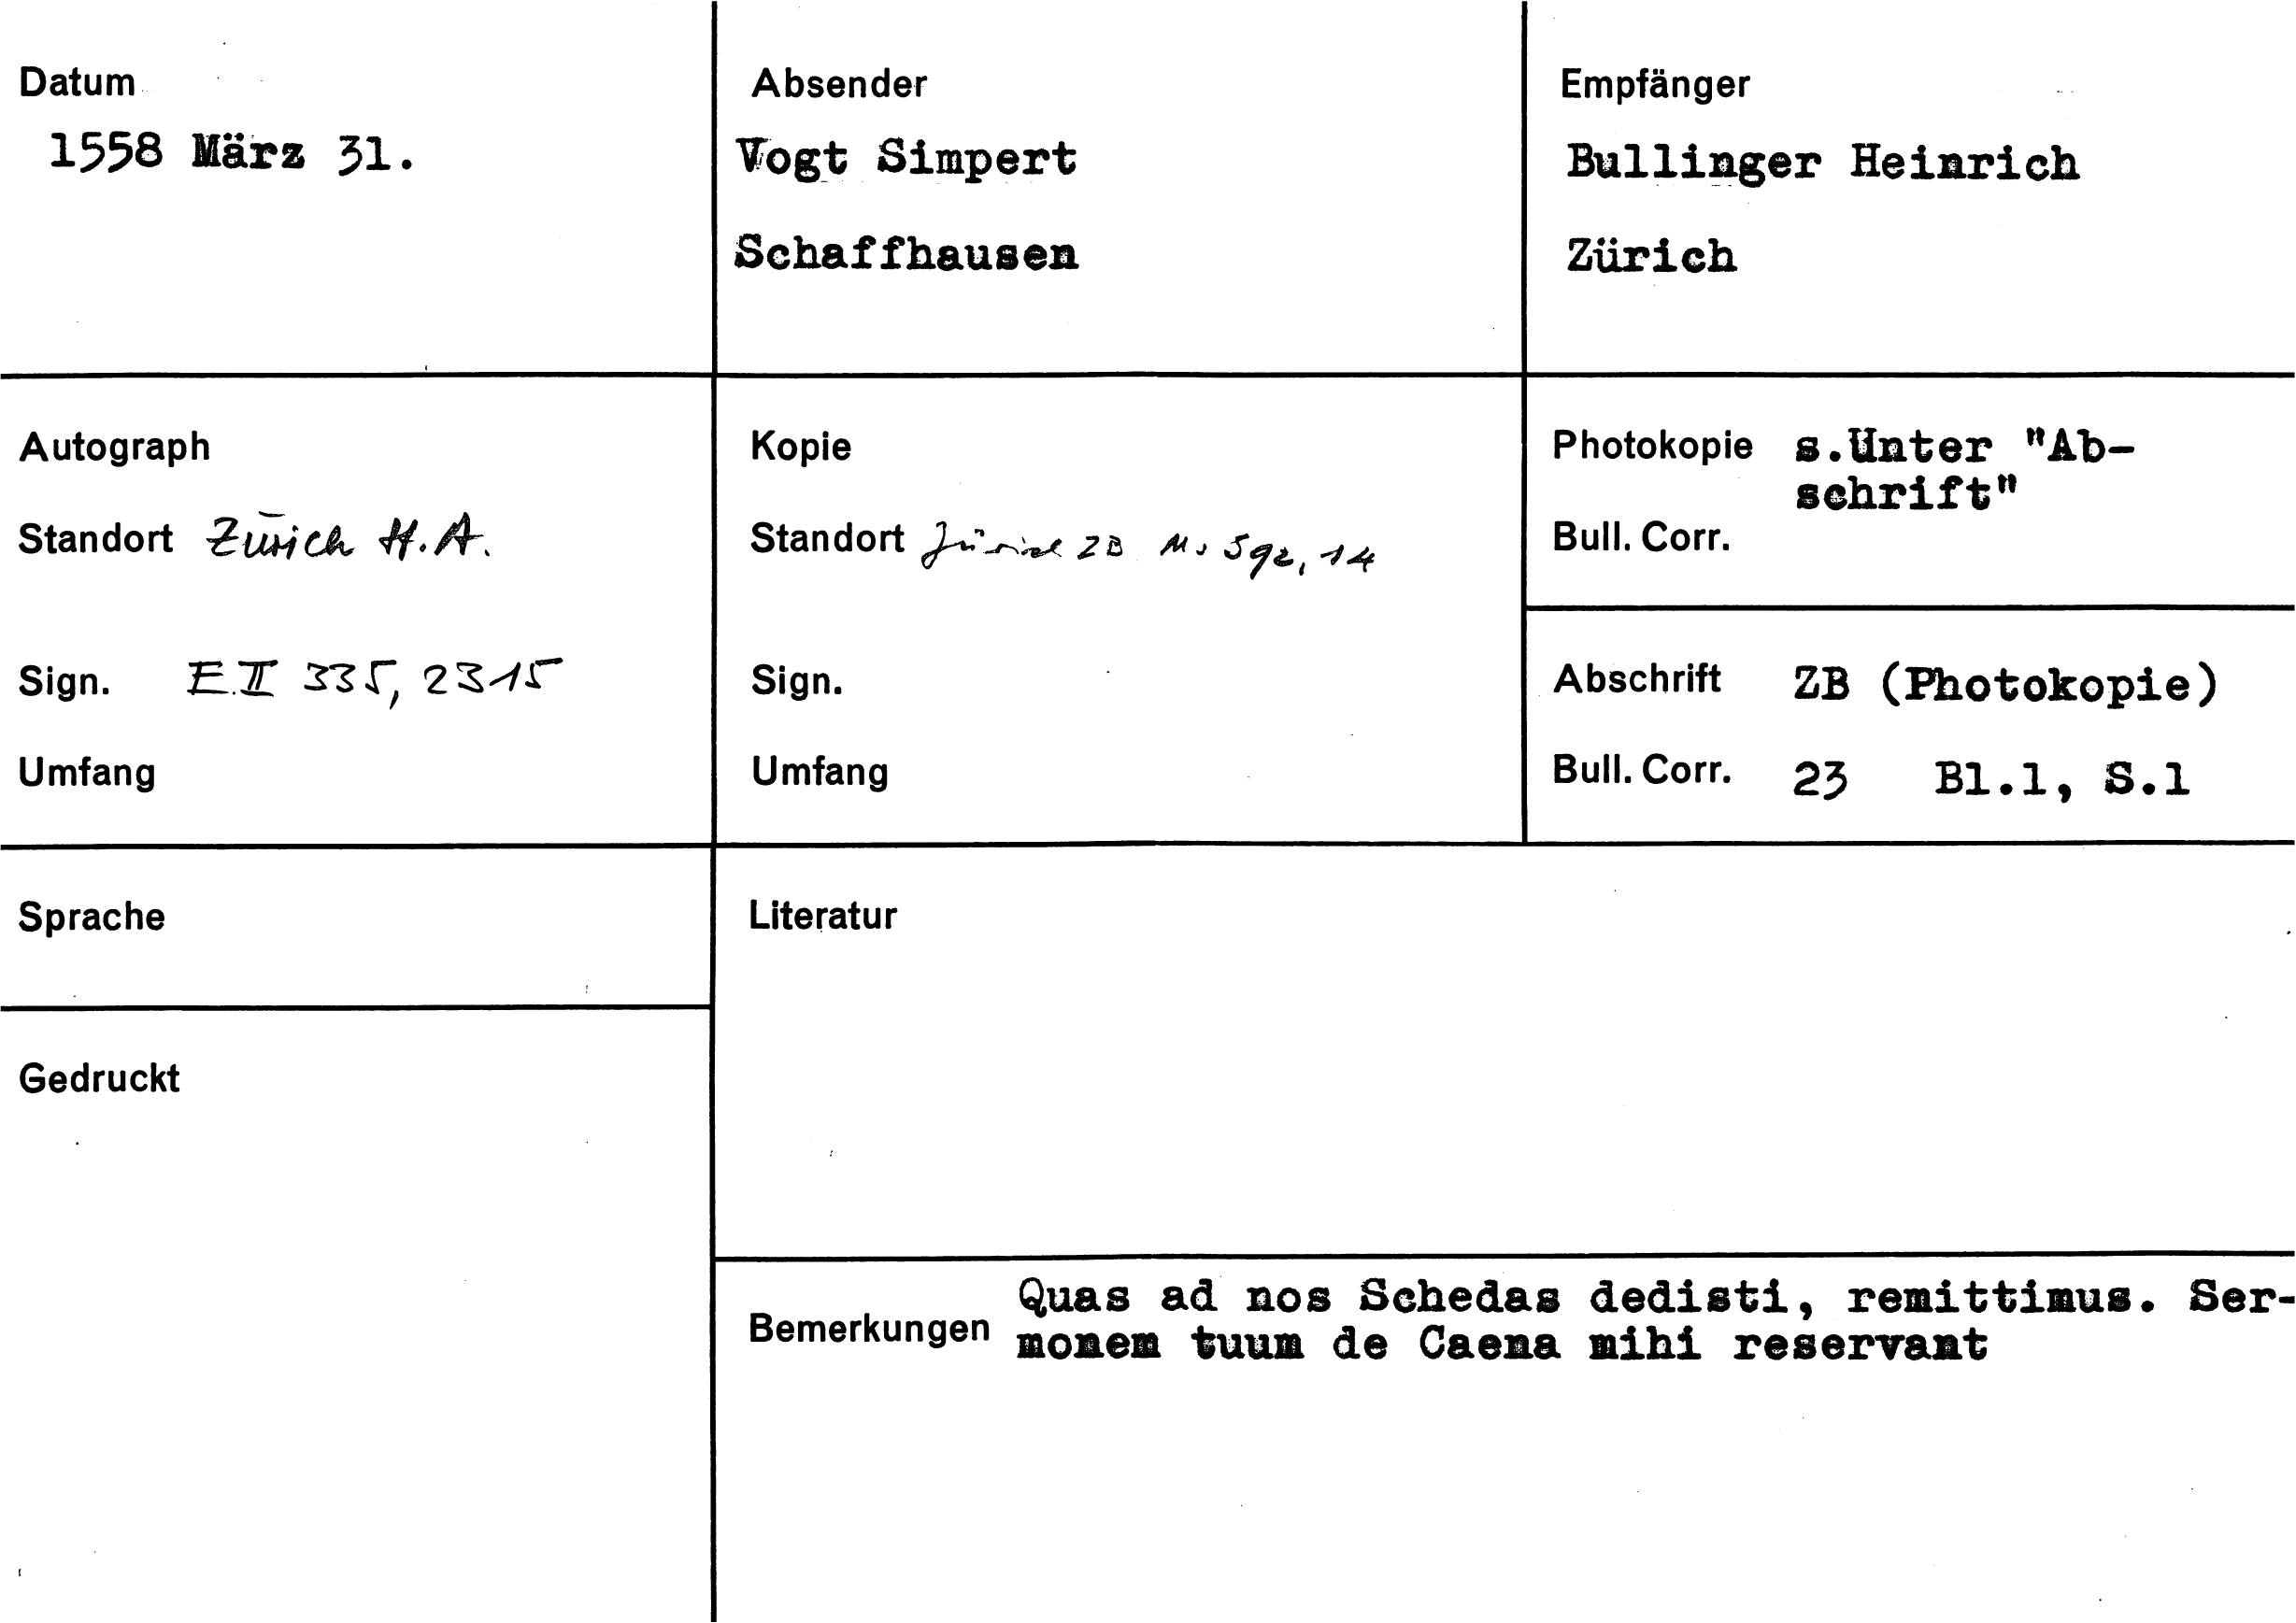 Datum
1558 März 31.
Absender
Vogt Simpert
Schaffhausen
Empfänger
Bullinger Heinrich
Zürich
Autograph
Standort Zürich H.A.
Sign. E.II 335, 2315
Umfang
Kopie
Standort Zürich ZB Ms S 92, 14
Sign.
Umfang
Photokopie s.Unter "Ab-
schrift"
Bull. Corr.
Abschrift ZB (Photokopie)
Bull. Corr. 23 Bl.1, S.1
Sprache
Literatur
Gedruckt
Bemerkungen Quas ad nos Schedas dedisti, remittimus. Ser-
monem tuum de Caena mihi reservant